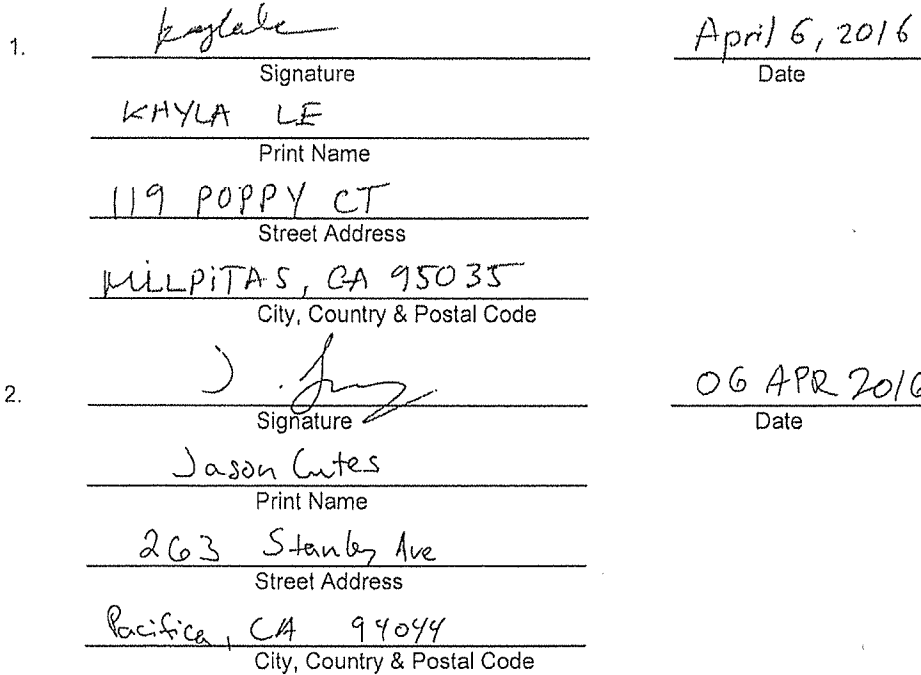 1. April 6, 2016
Signature Date
KHYLA LE
Print Name
119 POPPY CT
Street Address
MILPITAS, CA 95035
City, Country & Postal Code
2. 06 APR 2016
Signature Date
Jason
Print Name
263 Stanley Ave
Street Address
Pacifica, CA 94044
City, Country & Postal Code